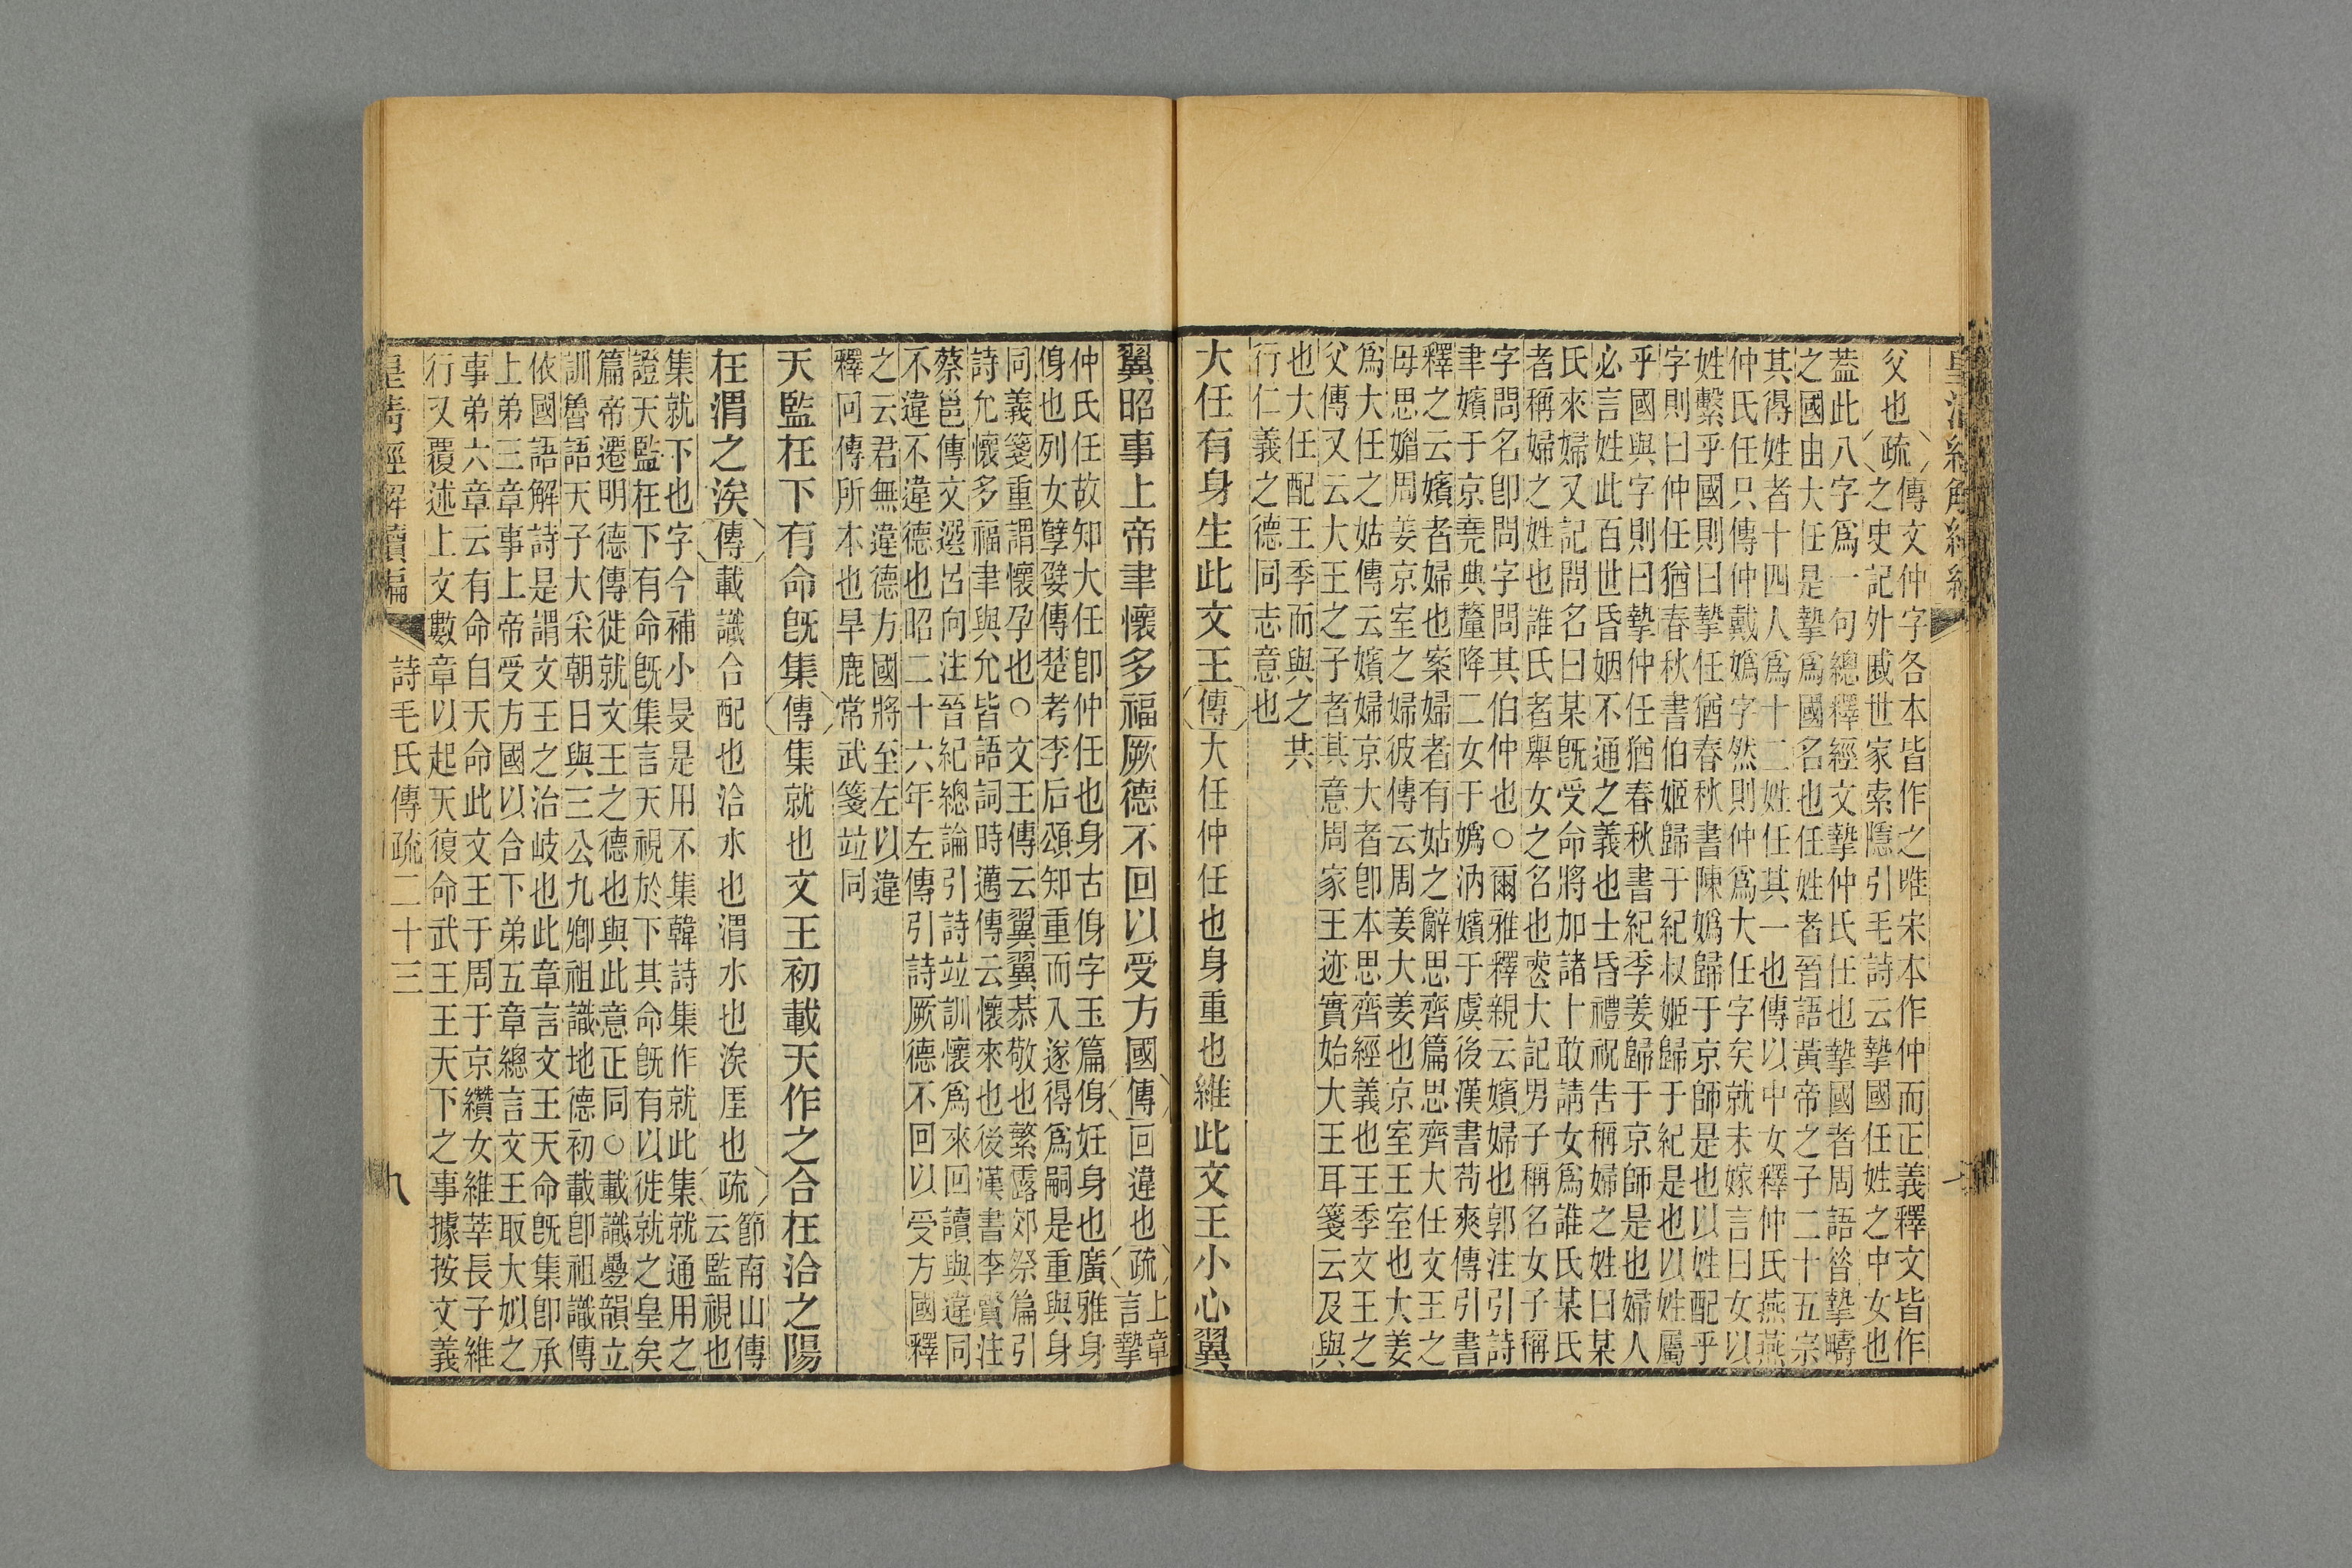 父也疏傳文仲字各本皆作之唯宋本作仲而正義釋文皆作
之史記外戚世家索隱引毛詩云摯國任姓之中女也
蓋此八字爲一句總釋經文摯仲氏任也摯國者周語昝摯疇
之國由大任是摯爲國名也任姓者晉語黃帝之子二十五宗
其得姓者十四人爲十二姓任其一也傳以中女釋仲氏燕燕
仲氏任只傳仲戴嬀字然則仲爲大任字矣就未嫁言曰女以
姓繫乎國則曰摯任猶春秋書陳嬀歸于京師是也以姓配乎
字則曰仲任猶春秋書伯姬歸于紀叔姬歸于紀是也以姓屬
乎國與字則曰摯仲任猶春秋書紀季姜歸于京師是也婦人
必言姓此百世昏姻不通之義也士昏禮祝告稱婦之姓曰某
氏來婦又記問名曰某旣受命將加諸卜敢請女爲誰氏某氏
者稱婦之姓也誰氏者舉女之名也喪大記男子稱名女子稱
字問名卽問字問其伯仲也○爾雅釋親云嬪婦也郭注引詩
聿嬪于京堯典釐降二女于嬀汭嬪于虞後漢書荀爽傳引書
釋之云嬪者婦也案婦者有姑之辭思齊篇思齊大任文王之
母思媚周姜京室之婦彼傳云周姜大姜也京室王室也大姜
爲大任之姑傳云嬪婦京大者卽本思齊經義也王季文王之
父傳又云大王之子者其意周家王迹實始大王耳箋云及與
也大任配王季而與之共
行仁義之德同志意也
大任有身生此文王傳大任仲任也身重也維此文王小心翼
翼昭事上帝聿懷多福厥德不回以受方國傳回違也疏上章
言摯
仲氏任故知大任卽仲任也身古㑗字玉篇㑗妊身也廣雅身
㑗也列女孽嬖傳楚考李后頌知重而入遂得爲嗣是重與身
同義箋重謂懷孕也○文王傳云翼翼恭敬也繁露郊祭篇引
詩允懷多福聿與允皆語詞時邁傳云懷來也後漢書李賢注
蔡邕傳文選呂向注晉紀總論引詩竝訓懷爲來回讀與違同
不違不違德也昭二十六年左傳引詩厥德不回以受方國釋
之云君無違德方國將至左以違
釋回傳所本也旱鹿常武箋竝同
天監在下有命旣集傳集就也文王初載天作之合在洽之陽
在渭之涘傳載識合配也洽水也渭水也涘厓也疏節南山傳
云監視也
集就下也字今補小旻是用不集韓詩集作就此集就通用之
證天監在下有命旣集言天視於下其命旣有以徙就之皇矣
篇帝遷明德傳徙就文王之德也與此意正同○載識曡韻立
訓魯語天子大采朝日與三公九卿祖識地德初載卽祖識傳
依國語解詩是謂文王之治岐也此章言文王天命旣集卽承
上弟三章事上帝受方國以合下弟五章總言文王取大姒之
事弟六章云有命自天命此文王于周于京纘女維莘長子維
行又覆述上文數章以起天復命武王王天下之事據按文義
皇清經解續編 詩毛氏傳疏二十三 九